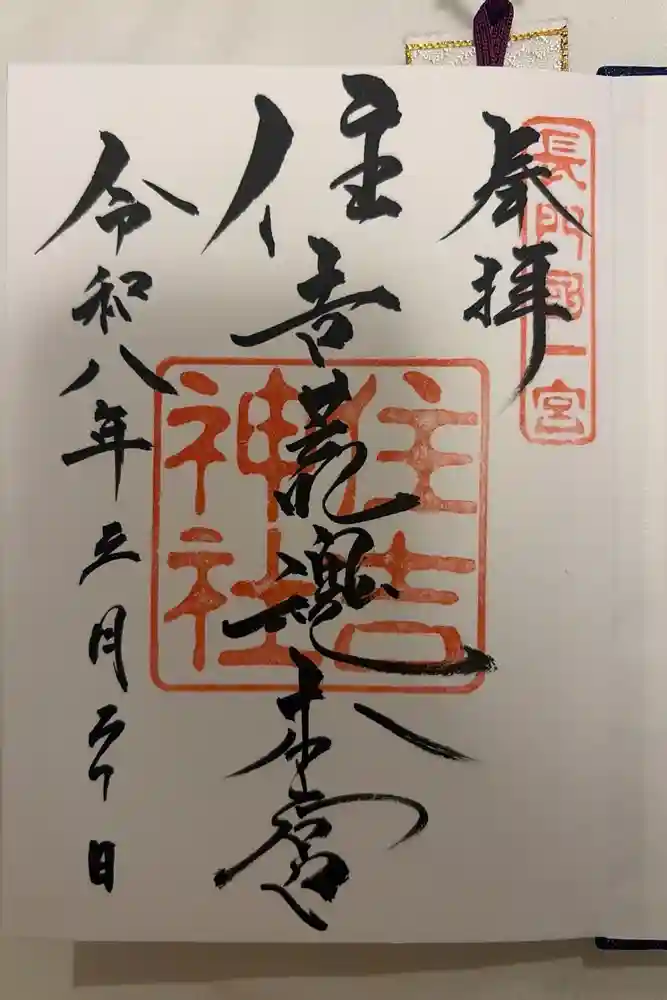 奉拝
長門國一宮
住吉荒魂本宮
住吉
神社
令和八年三月二十日